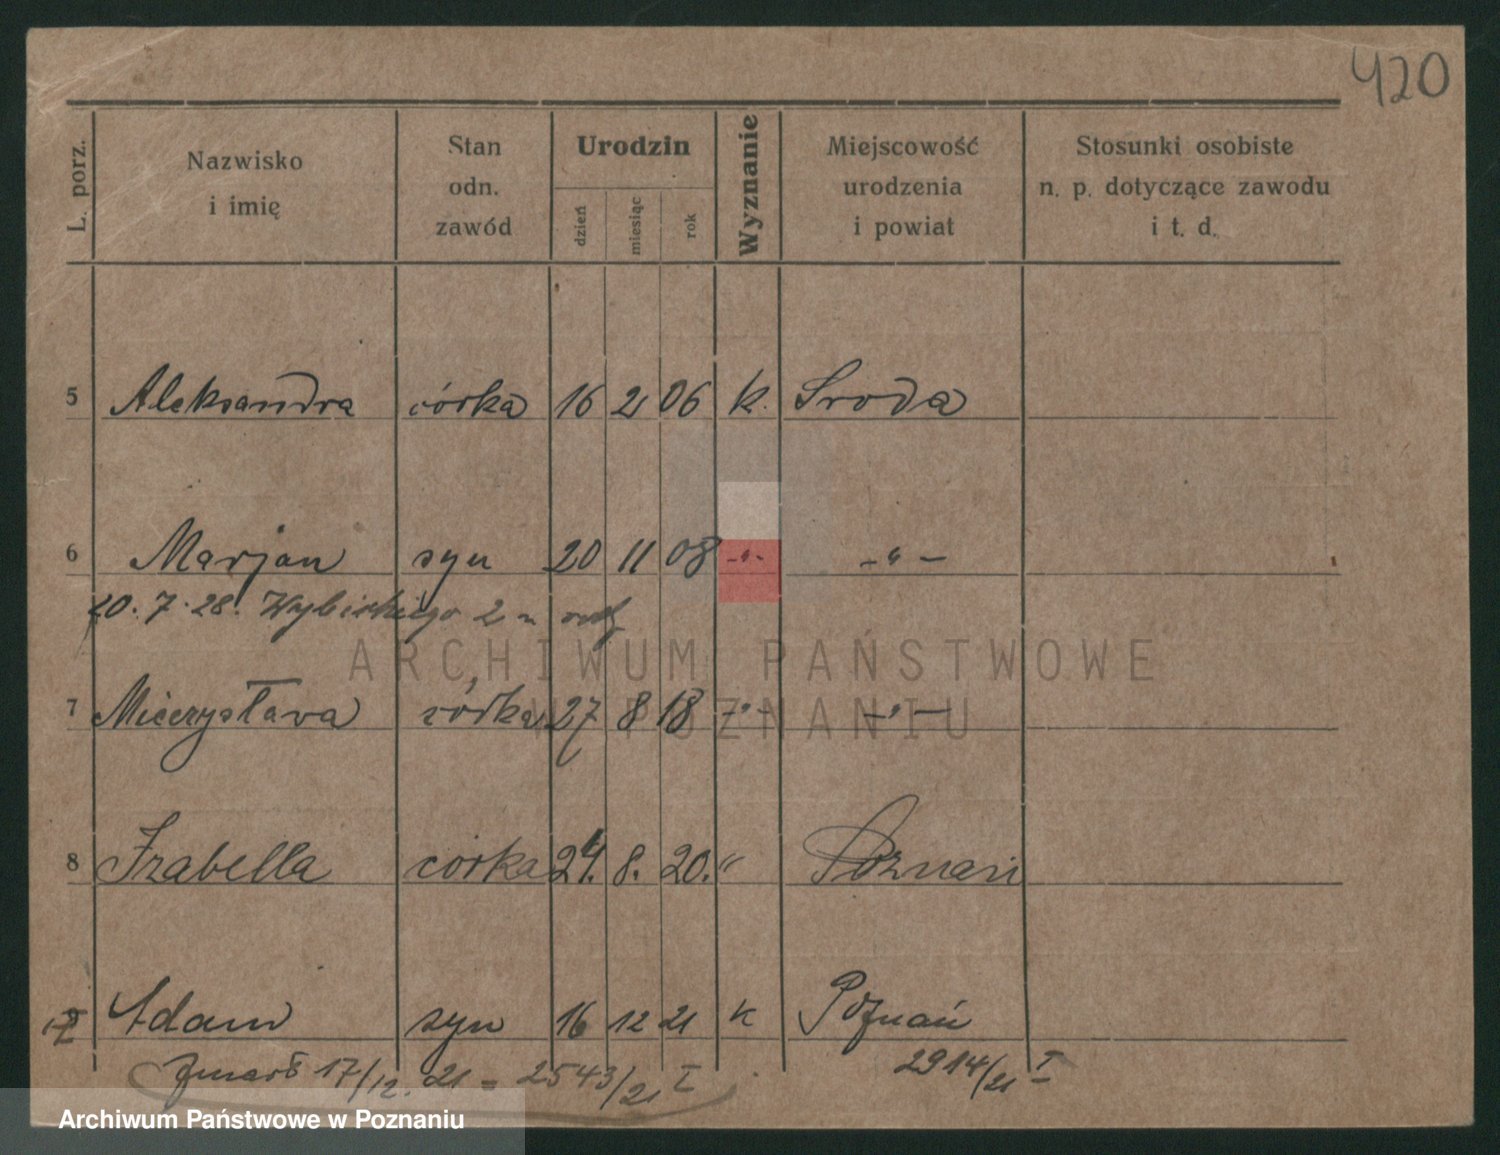 420
L. porz.
Nazwisko i imię
Stan odn. zawód
Urodzin
dzień
miesiąc
rok
Wyznanie
Miejscowość urodzenia i powiat
Stosunki osobiste n. p. dotyczące zawodu i t. d.
5 Aleksandra córka 16 2 06 k. Sroda
6 Marjan syn 20 11 08 -"- -"-
20.7.28. Wybickiego 2
ARCHIWUM PAŃSTWOWE
7 Mieczysława córka 27 8 18 -"- -"-
W POZNANIU
8 Izabella córka 24. 8. 20. " Poznań
Adam syn 16 12 21 k Poznań
zmarł 17/12. 21 = 2543/21 I 2914/21 I
Archiwum Państwowe w Poznaniu